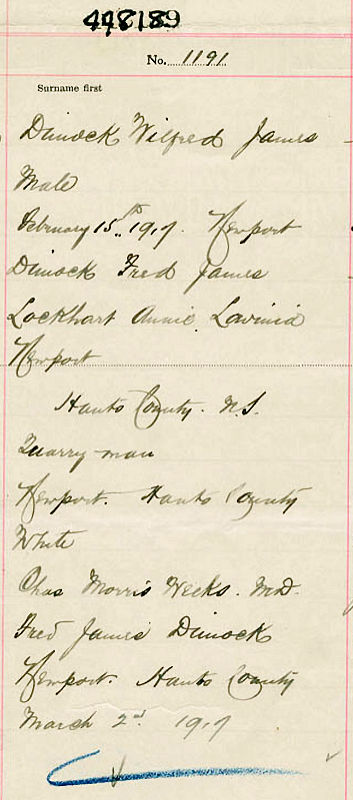 448189
No. 1191
Surname first
Dimock Wilfred James
Male
February 15th 1917. Newport
Dimock Fred James
Lockhart Annie Lavinia
Newport
Hants County. N.S.
Quarry-man
Newport. Hants County
White
Chas Morris Weeks. M.D.
Fred James Dimock
Newport. Hants County
March 2nd 1917